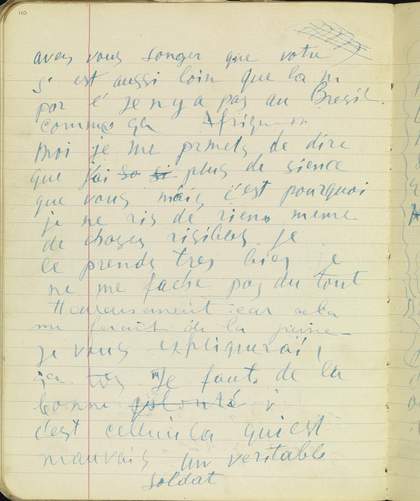 110
avez vous songer que votre
s'est aussi loin que la
por é Je n y a pas au Bresil.
comme ça Afrique
moi je me premets de dire
que j'ai so si plus de sience
que vous mais c'est pourquoi
je ne ris de rien meme
de choses risibles je
le prends tres bien je
ne me fache pas du tout
Heureusement car cela
me ferait de la peine
je vous expliquerai,
tres Je fauts de la
bonne volonté
c'est celluila qui est
mauvais un veritable
soldat